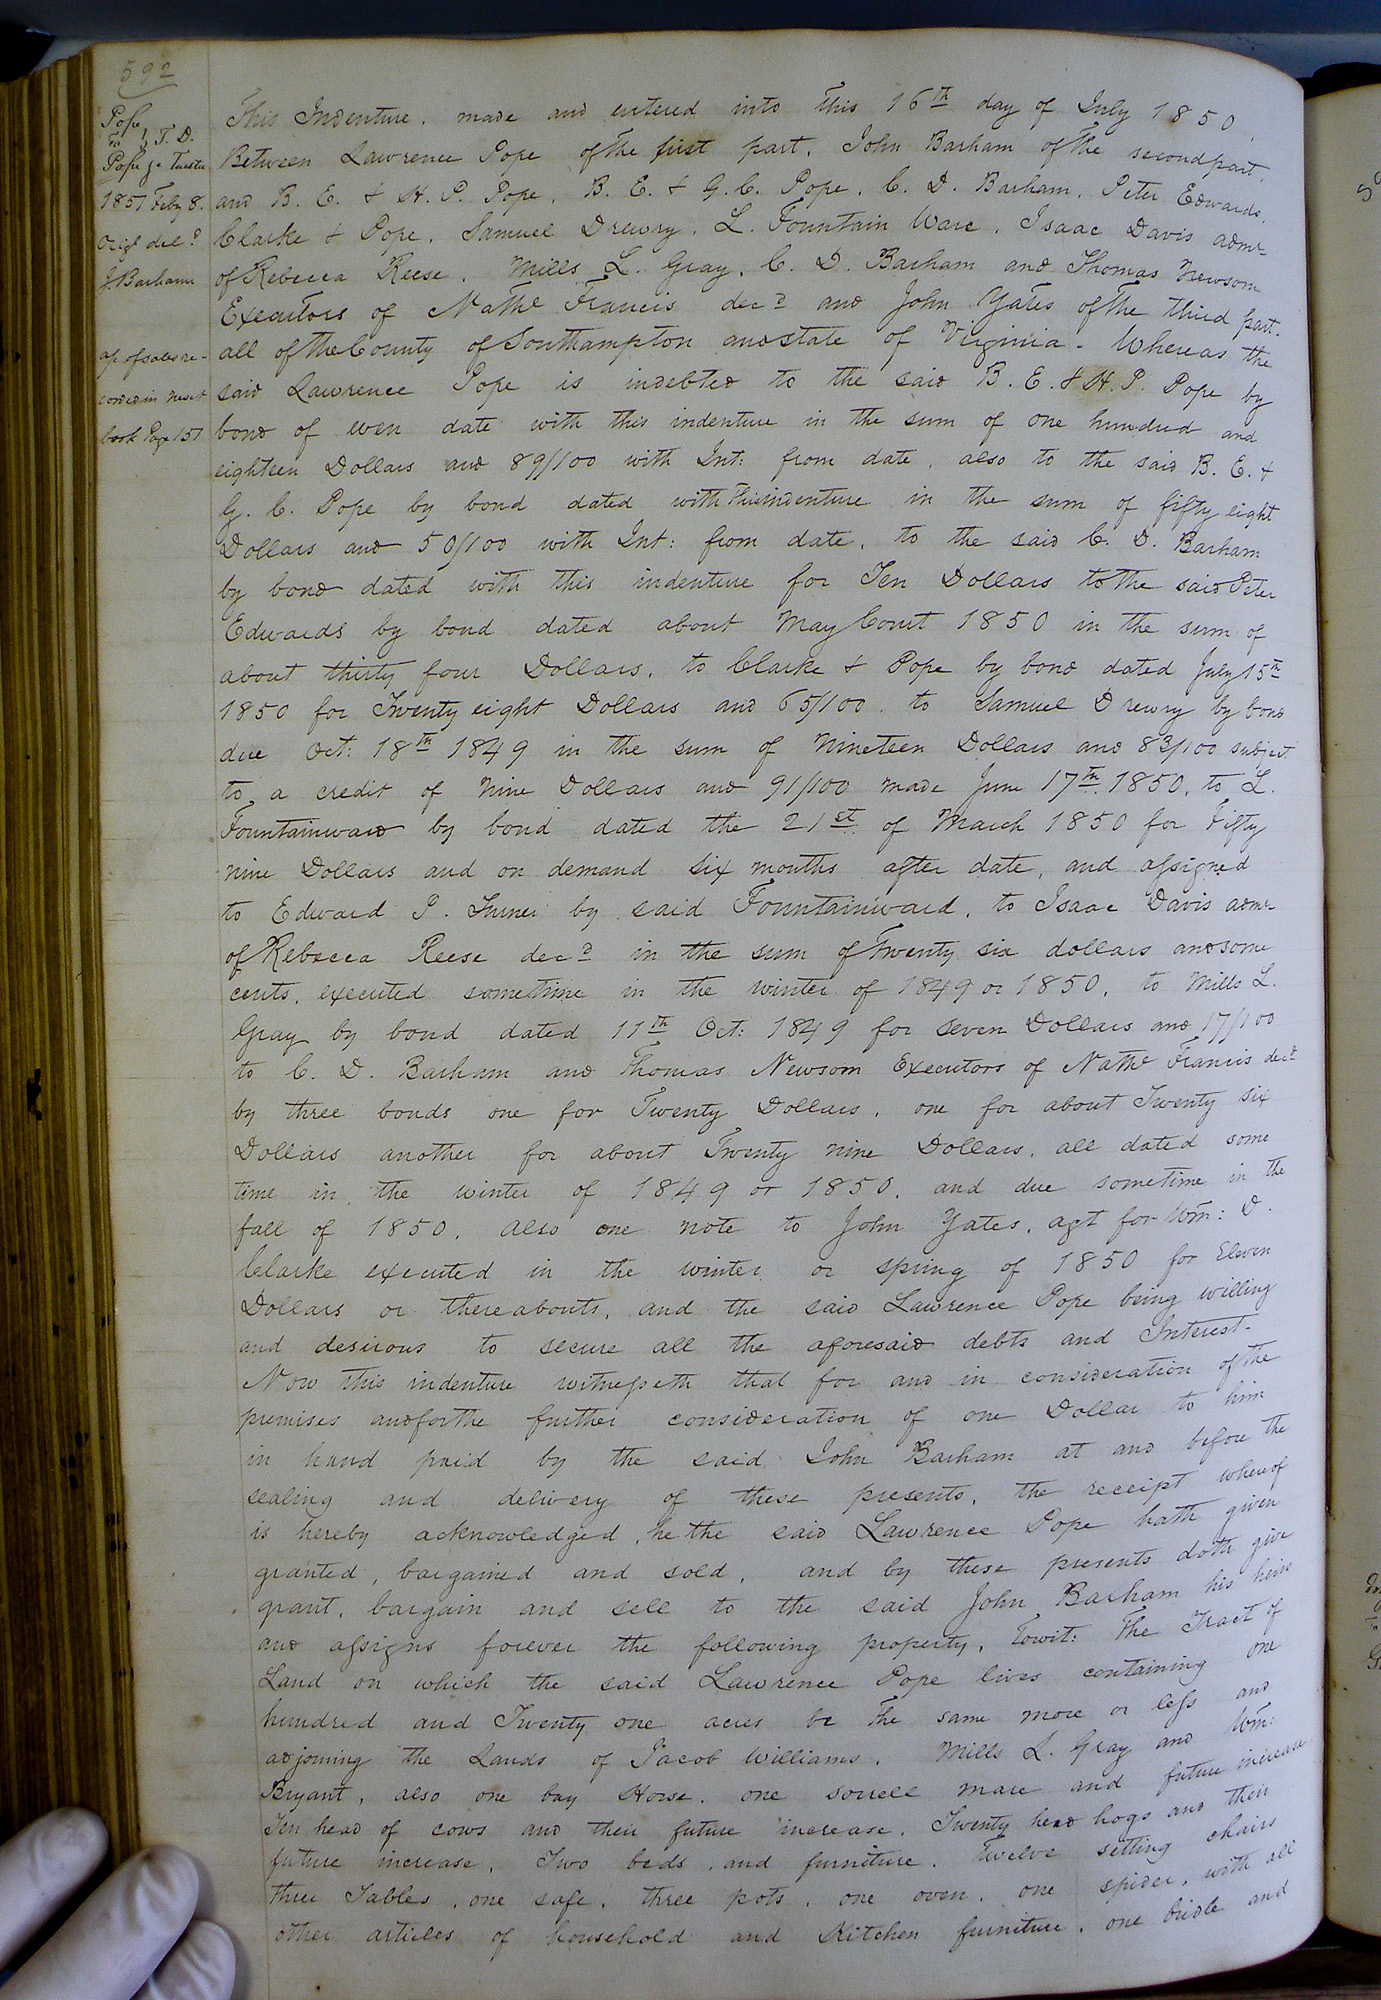 592
Pope
To } T. D.
Pope &c Trustee
1851 Feby 8.
Origl deld
J Barham
ap of sales re-
corded in next
book Page 151
This Indenture, made and entered into this 16th day of July 1850,
Between Lawrence Pope of the first part, John Barham of the second part
and B. E. & H. P. Pope, B. E. & G. C. Pope, C. D. Barham, Peter Edwards,
Clarke & Pope, Samuel Drewry, L. Fountain Ware, Isaac Davis admr
of Rebecca Reese, Mills L. Gray, C. D. Barham and Thomas Newsom
Executors of Nathl Francis decd and John Yates of the third part.
all of the County of Southampton and state of Virginia - Whereas the
said Lawrence Pope is indebted to the said B. E. & H. P. Pope by
bond of even date with this indenture in the sum of one hundred and
eighteen Dollars and 89/100 with Int: from date, also to the said B. E. &
G. C. Pope by bond dated with this indenture in the sum of fifty eight
Dollars and 50/100 with Int: from date, to the said C. D. Barham
by bond dated with this indenture for Ten Dollars to the said Peter
Edwards by bond dated about May Court 1850 in the sum of
about thirty four Dollars, to Clarke & Pope by bond dated July 15th
1850 for Twenty eight Dollars and 65/100. to Samuel Drewry by bond
due Oct: 18th 1849 in the sum of Nineteen Dollars and 83/100 subject
to a credit of Nine Dollars and 91/100 made June 17th 1850, to L.
Fountainward by bond dated the 21st of March 1850 for Fifty
nine Dollars and on demand six months after date, and assigned
to Edward P. Turner by said Fountainward, to Isaac Davis admr
of Rebecca Reese decd in the sum of Twenty six dollars and some
cents, executed sometime in the winter of 1849 or 1850, to Mills L.
Gray by bond dated 11th Oct: 1849 for seven Dollars and 17/100
to C. D. Barham and Thomas Newsom Executors of Nathl Francis decd
by three bonds one for Twenty Dollars, one for about Twenty six
Dollars another for about Twenty nine Dollars, all dated some
time in the winter of 1849 or 1850, and due sometime in the
fall of 1850, also one note to John Yates, agt for Wm: D.
Clarke executed in the winter or spring of 1850 for Eleven
Dollars or thereabouts, and the said Lawrence Pope being willing
and desirous to secure all the aforesaid debts and Interest-
Now this indenture witnesseth that for and in consideration of the
premises and for the further consideration of one Dollar to him
in hand paid by the said John Barham at and before the
sealing and delivery of these presents, the receipt whereof
is hereby acknowledged, he the said Lawrence Pope hath given
granted, bargained and sold, and by these presents doth give
grant, bargain and sell to the said John Barham his heirs
and assigns forever the following property, Towit: The Tract of
Land on which the said Lawrence Pope lives containing one
hundred and Twenty one acres be the same more or less and
adjoining the Lands of Jacob Williams, Mills L. Gray and Wm:
Bryant, also one bay Horse, one sorrell mare and future increase
Ten head of cows and their future increase, Twenty head hogs and their
future increase, Two beds and furniture, Twelve setting chairs
three Tables, one safe, three pots, one oven, one spider, with all
other articles of household and Kitchen furniture, one bridle and